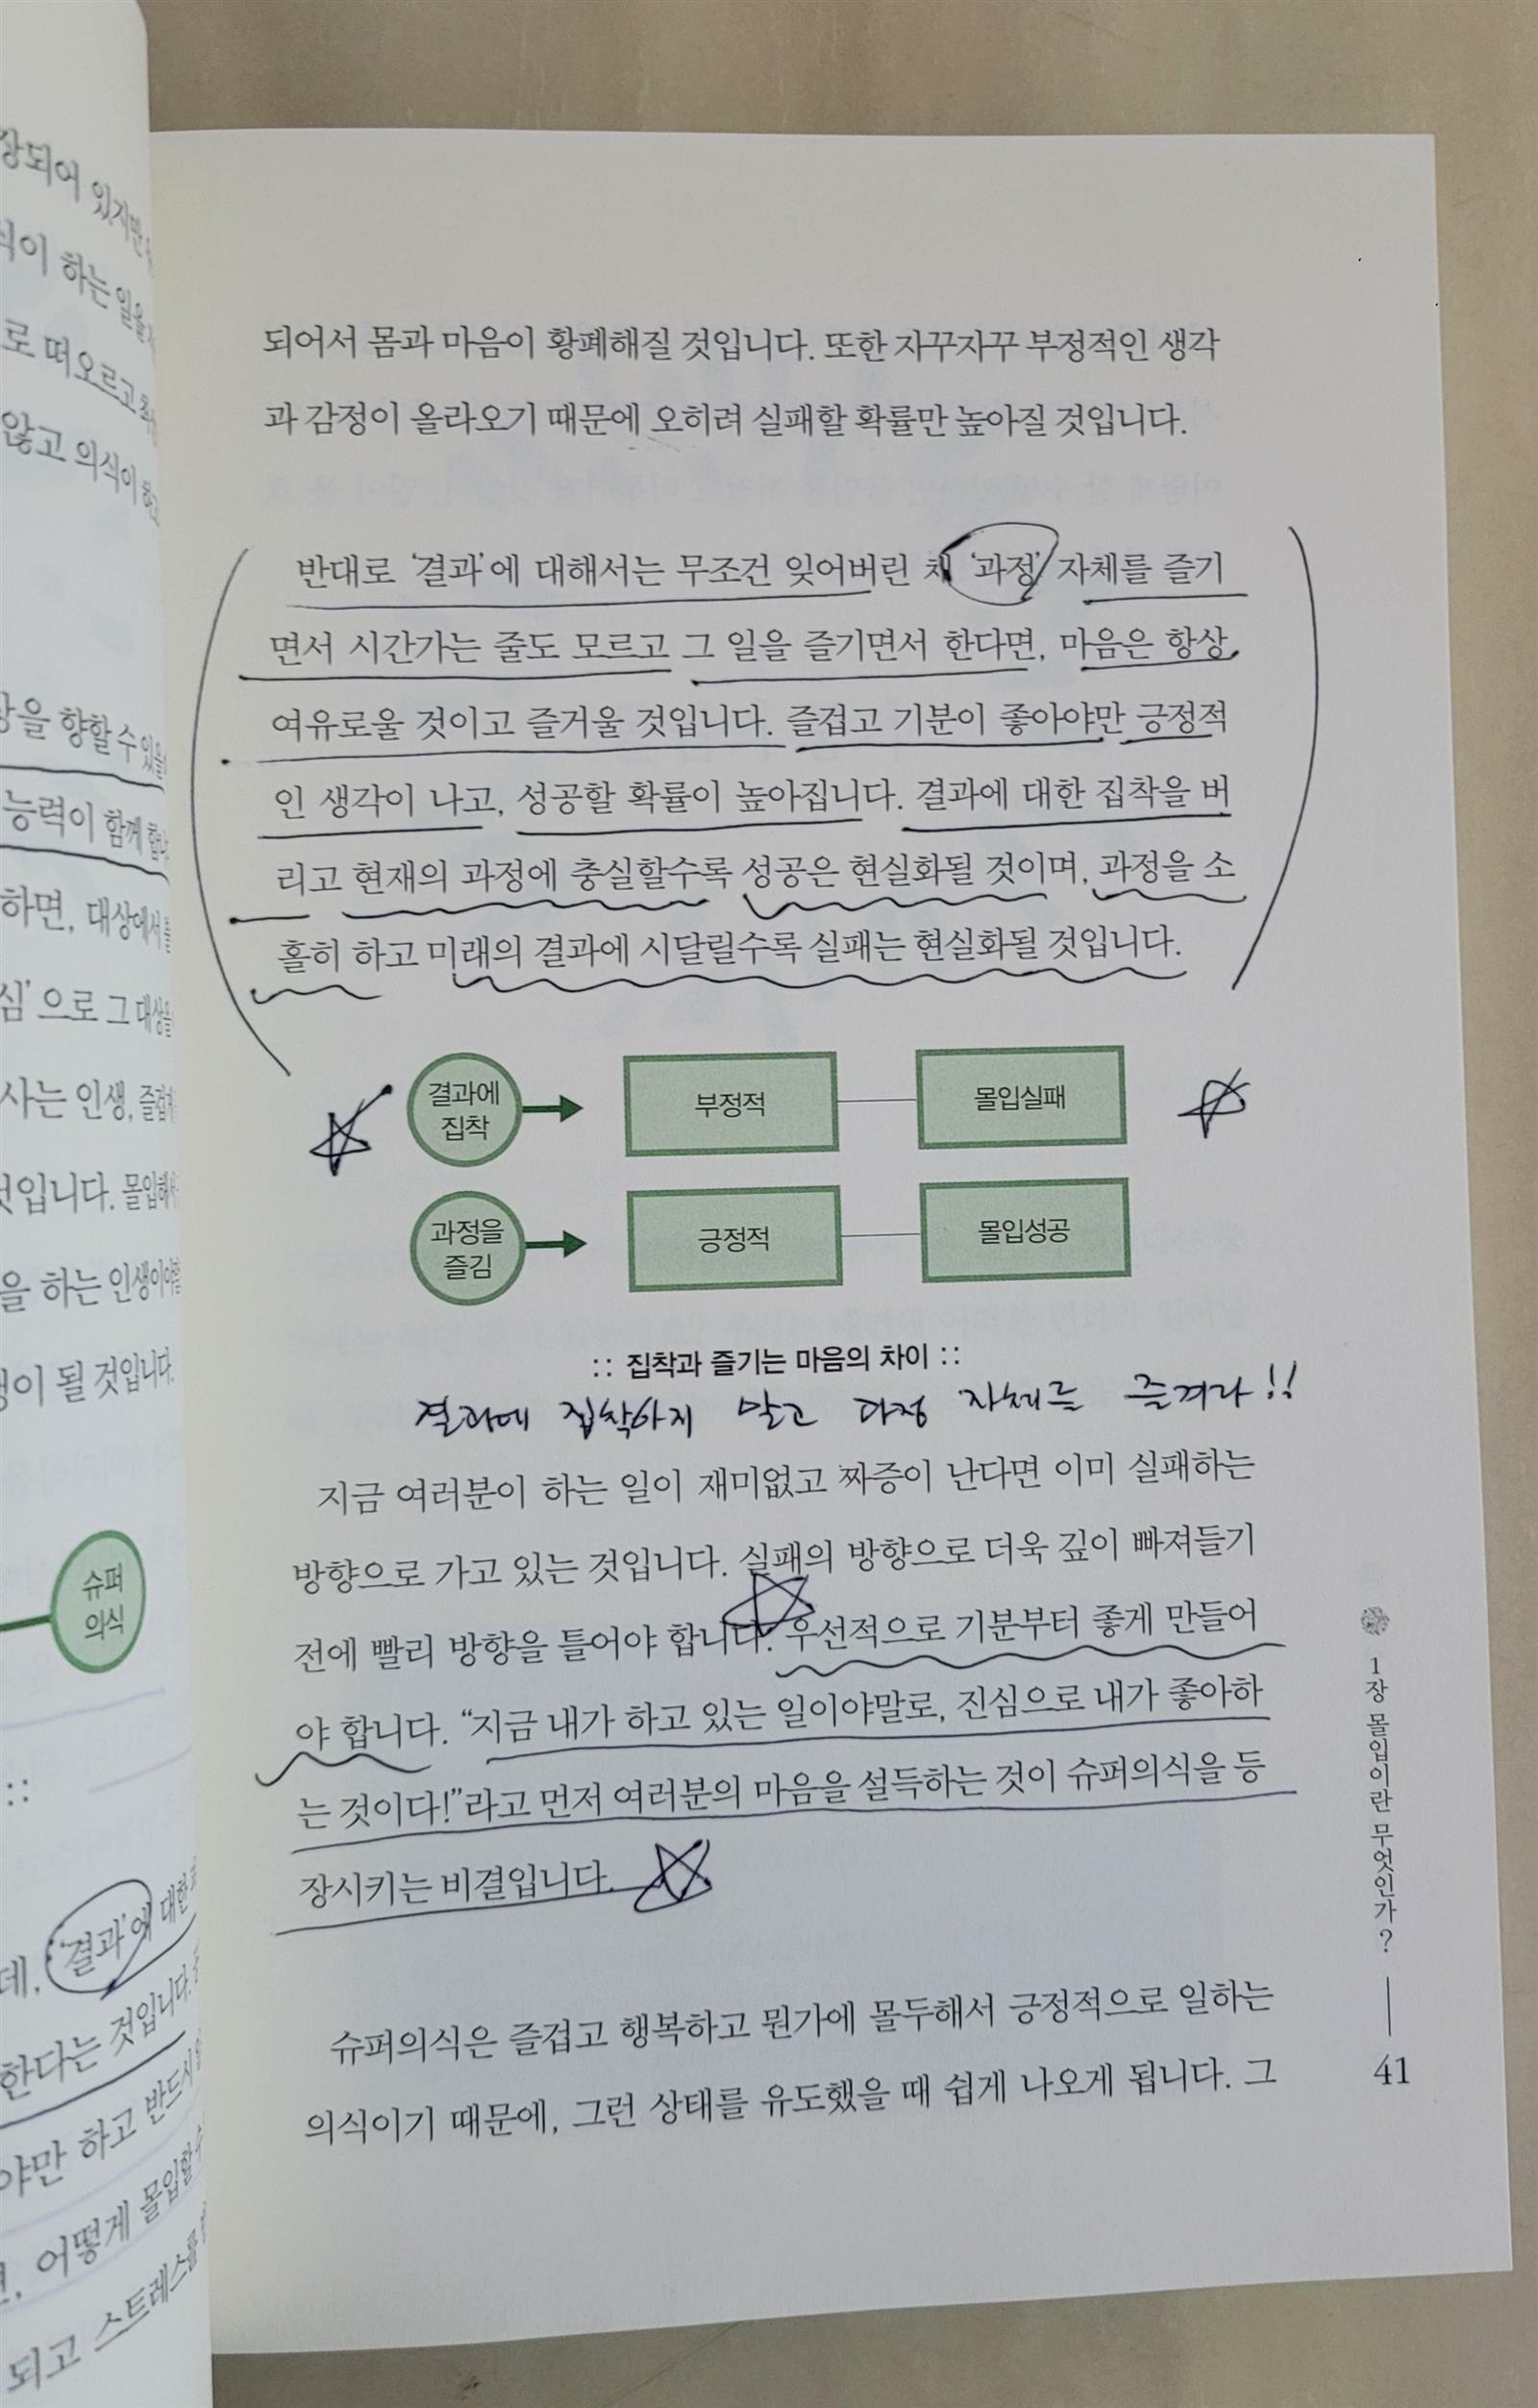 장되어 있지만
식이 하는 일을
로 떠오르고
않고 의식이
상을 향할 수 있을
능력이 함께
하면, 대상에서
심'으로 그 대상을
사는 인생, 즐겁게
것입니다. 몰입해서
을 하는 인생이야
생이 될 것입니다.
슈퍼
의식
::
데, '결과'에 대한
한다는 것입니다.
야만 하고 반드시
어떻게 몰입할 수
되고 스트레스를
되어서 몸과 마음이 황폐해질 것입니다. 또한 자꾸자꾸 부정적인 생각
과 감정이 올라오기 때문에 오히려 실패할 확률만 높아질 것입니다.
반대로 '결과'에 대해서는 무조건 잊어버린 채 '과정' 자체를 즐기
면서 시간가는 줄도 모르고 그 일을 즐기면서 한다면, 마음은 항상
여유로울 것이고 즐거울 것입니다. 즐겁고 기분이 좋아야만 긍정적
인 생각이 나고, 성공할 확률이 높아집니다. 결과에 대한 집착을 버
리고 현재의 과정에 충실할수록 성공은 현실화될 것이며, 과정을 소
홀히 하고 미래의 결과에 시달릴수록 실패는 현실화될 것입니다.
결과에
집착
부정적
몰입실패
과정을
즐김
긍정적
몰입성공
:: 집착과 즐기는 마음의 차이 ::
결과에 집착하지 말고 과정 자체를 즐겨라!!
지금 여러분이 하는 일이 재미없고 짜증이 난다면 이미 실패하는
방향으로 가고 있는 것입니다. 실패의 방향으로 더욱 깊이 빠져들기
전에 빨리 방향을 틀어야 합니다. 우선적으로 기분부터 좋게 만들어
야 합니다. “지금 내가 하고 있는 일이야말로, 진심으로 내가 좋아하
는 것이다!”라고 먼저 여러분의 마음을 설득하는 것이 슈퍼의식을 등
장시키는 비결입니다.
슈퍼의식은 즐겁고 행복하고 뭔가에 몰두해서 긍정적으로 일하는
의식이기 때문에, 그런 상태를 유도했을 때 쉽게 나오게 됩니다. 그
1장 몰입이란 무엇인가?
41